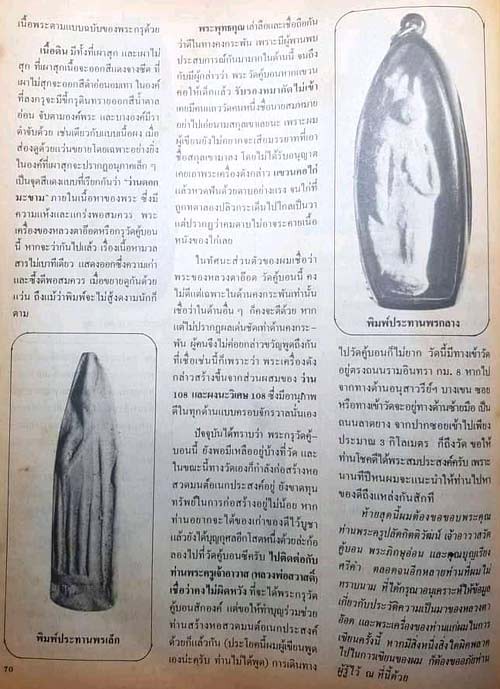 เนื้อพระตามแบบฉบับของพระกรุด้วย
เนื้อดิน มีทั้งที่เผาสุก และเผาไม่
สุก ที่เผาสุกเนื้อจะออกสีแดงจางซีด ที่
เผาไม่สุกจะออกสีดำอ่อนอมเทา ในองค์
ที่ลงกรุจะมีขี้กรุดินทรายออกสีน้ำตาล
ย่อน จับตามองค์พระ และบางองค์มีรา
ดำจับด้วย เช่นเดียวกับแบบเนื้อผง เมื่อ
ส่องดูด้วยแว่นขยายโดยเฉพาะอย่างยิ่ง
ในองค์ที่เผาสุกจะปรากฏอนุภาคเล็ก ๆ
เป็นจุดสีแดงแบบที่เรียกกันว่า "ว่านดอก
มะขาม" ภายในเนื้อหาของพระ ซึ่งมี
ความแห้งและแกร่งพอสมควร พระ
เครื่องของหลวงตาอ๊อดหรือกรุวัดคู้บอน
นี้ หากจะว่ากันไปแล้ว เรื่องเนื้อหามวล
สารไม่เบาทีเดียว แสดงออกซึ่งความเก่า
และซึ้งดีพอสมควร เมื่อขยายดูกันด้วย
แว่น ถึงแม้ว่าพิมพ์จะไม่สู้งดงามนักก็
ตาม
พิมพ์ประทานพรเล็ก
70
พระพุทธคุณ เล่าลือและเชื่อถือกัน
ว่าดีในทางคงกระพัน เพราะมีผู้พานพบ
ประสบการณ์กันมามากในด้านนี้ จนถึง
กับมีผู้กล่าวว่า พระวัดคู้บอนหากแขวน
คอให้เด็กแล้ว รับรองหมากัดไม่เข้า
เคยมีคนแถววัดคนหนึ่งชื่อนายสมหมาย
อย่าไปเค่อนามสกุลเขาเลยนะ เพราะผม
ผู้เขียนยังไม่อยากจะเสียมรรยาทที่เอา
ชื่อสกุลเขามาลง โดยไม่ได้รับอนุญาต
เคยเอาพระเครื่องดังกล่าว แขวนคอไก่
แล้วหวดฟันด้วยดาบอย่างแรง จนไก่ที่
ถูกหดาลองปลิวกระเด็นไปไกลเป็นวา
แต่ปรากฏว่าคมดาบไม่อาจระคายเนื้อ
หนังของไก่เลย
ในทัศนะส่วนตัวของผมเชื่อว่า
พระของหลวงตาอ๊อด วัดคู้บอนนี้ คง
ไม่ดีแต่เฉพาะในด้านคงกระพันเท่านั้น
เชื่อว่าในด้านอื่น ๆ ก็คงจะดีด้วย หาก
แต่ไม่ปรากฏผลเด่นชัดเท่าด้านคงกระ–
พัน ผู้คนจึงไม่ค่อยกล่าวขวัญพูดถึงกัน
ที่เชื่อเช่นนี้ก็เพราะว่า พระเครื่องดัง
กล่าวสร้างขึ้นจากส่วนผสมของ ว่าน
108 และผงนะวิเศษ 108 ซึ่งมีอานุภาพ
ดีในทุกด้านแบบครอบจักรวาลนั่นเอง
ปัจจุบันได้ทราบว่า พระกรุวัดคู้–
บอนนี้ ยังพอมีเหลืออยู่บ้างที่วัด และ
ในขณะนี้ทางวัดเองก็กำลังก่อสร้างหอ
สวดมนต์อเนกประสงค์อยู่ ยังขาดทุน
ทรัพย์ในการก่อสร้างอยู่ไม่น้อย หาก
ท่านอยากจะได้ของเก่าของดีไว้บูชา
แล้วยังได้บุญกุศลอีกโสตหนึ่งด้วยล่ะก้อ
ลองไปที่วัดคู้บอนซีครับ ไปติดต่อกับ
ท่านพระครูเจ้าอาวาส (หลวงพ่อสวาสดิ์)
เชื่อว่าคงไม่ผิดหวัง ที่จะได้พระกรุวัด
คู้บอนสักองค์ แต่ขอให้ทำบุญร่วมช่วย
ท่านสร้างหอสวดมนต์อเนกประสงค์
ด้วยก็แล้วกัน (ประโยคนี้ผมผู้เขียนพูด
เองน่ะครับ ท่านไม่ได้พูด) การเดินทาง
พิมพ์ประทานพรกลาง
ไปวัดคู้บอนก็ไม่ยาก วัดนี้มีทางเข้าวัด
อยู่ตรงถนนรามอินทรา กม. 8 หากไป
จากทางด้านอนุสาวรีย์ฯ บางเขน ซอย
หรือทางเข้าวัดจะอยู่ทางด้านซ้ายมือ เป็น
ถนนลาดยาง จากปากซอยเข้าไปเพียง
ประมาณ 3 กิโลเมตร ก็ถึงวัด ขอให้
ท่านโชคดีได้พระสมประสงค์ครับ เพราะ
นานทีปีหนผมจะแนะนำให้ท่านไปหา
ของดีถึงแหล่งกันสักที
ท้ายสุดนี้ผมต้องขอขอบพระคุณ
ท่านพระครูปลัดกิตติวัฒน์ เจ้าอาวาสวัด
คู้บอน พระภิกษุอ่อน และคุณบุญเรือง
ศรีคำ ตลอดจนอีกหลายท่านที่ผมไม่
ทราบนาม ที่ได้กรุณาอนุเคราะห์ให้ข้อมูล
เกี่ยวกับประวัติความเป็นมาของหลวงตา
อ๊อด และพระเครื่องของท่านแก่ผมในการ
เขียนครั้งนี้ หากมีสิ่งหนึ่งสิ่งใดผิดพลาด
ไปในการเขียนของผม ก็ต้องขออภัยท่าน
ผู้รู้ไว้ ณ ที่นี้ด้วย